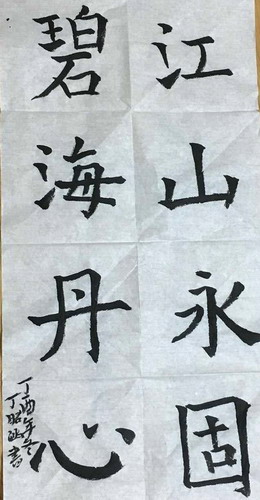 江山永固
碧海丹心
丁酉年冬
丁昭 書